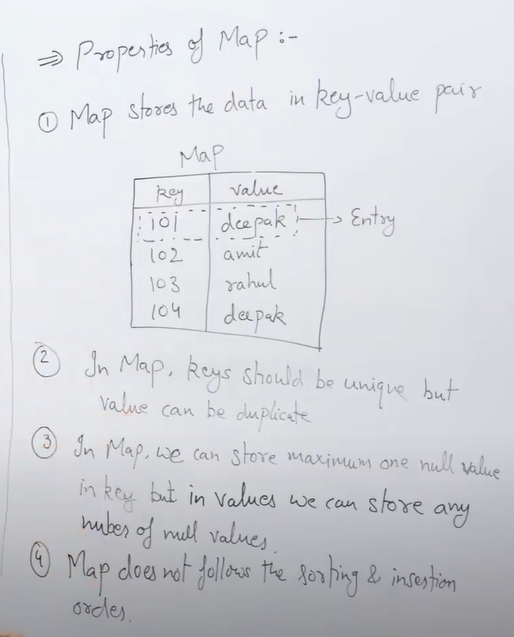 ⇒ Properties of Map :-
① Map stores the data in key-value pair
Map
key value
101 deepak → Entry
102 amit
103 rahul
104 deepak
② In Map, keys should be unique but
value can be duplicate
③ In Map, we can store maximum one null value
in key but in values we can store any
nubes of null values.
④ Map does not follows the sorting & insertion
order.